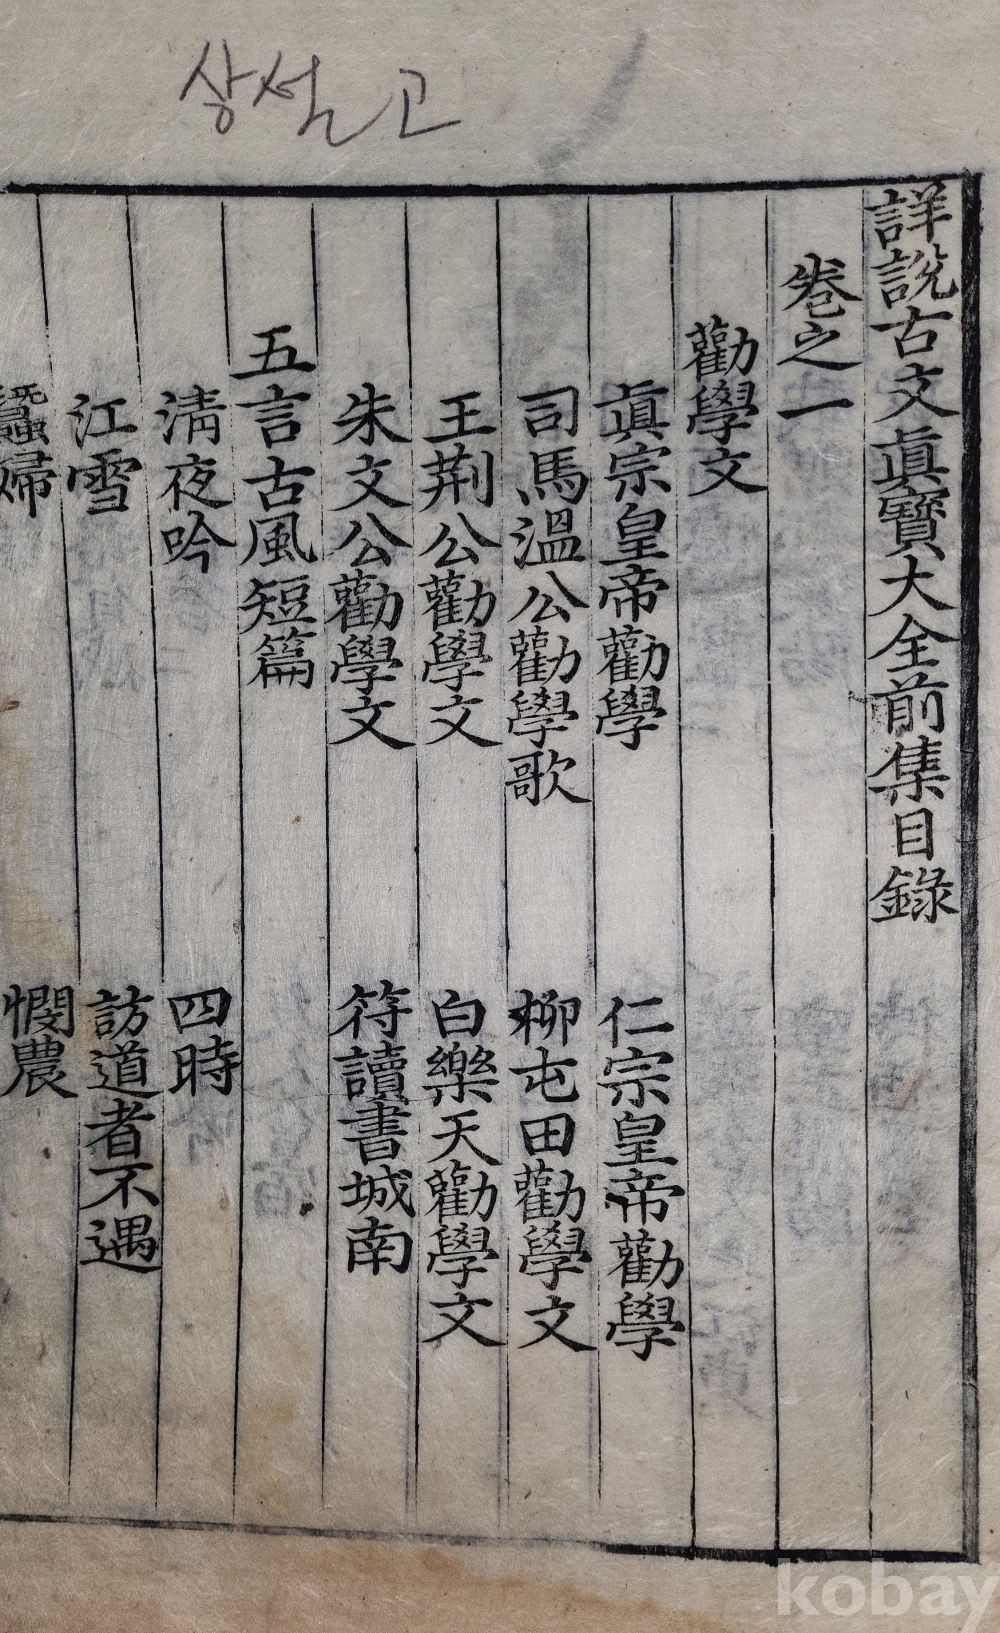 상설고
詳說古文眞寶大全前集目錄
卷之一
勸學文
眞宗皇帝勸學 仁宗皇帝勸學
司馬溫公勸學歌 柳屯田勸學文
王荆公勸學文 白樂天勸學文
朱文公勸學文 符讀書城南
五言古風短篇
淸夜吟 四時
江雪 訪道者不遇
蠶婦 憫農
kobay